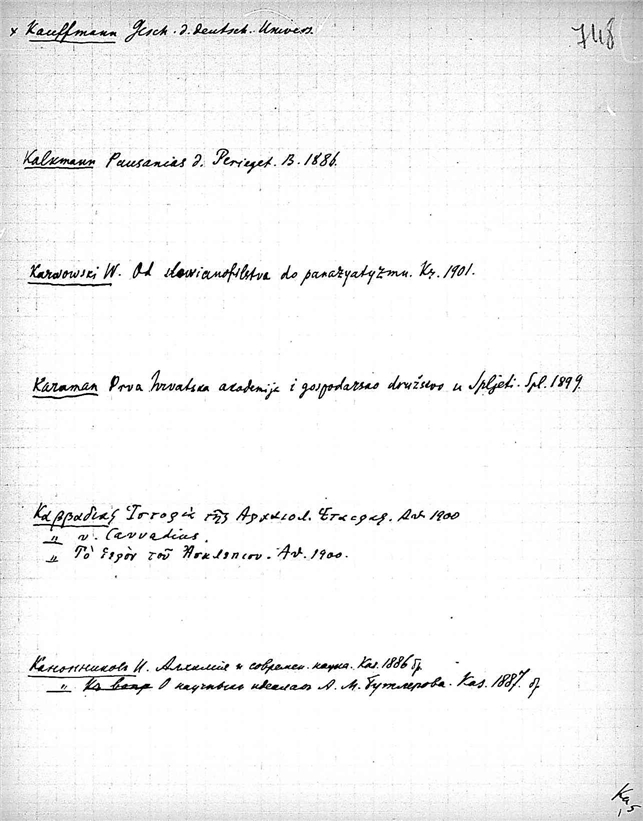 x Kauffmann Gesch. d. deutsch. Univers.
748
Kalkmann Pausanias d. Perieget. B. 1886.
Karwowski W. Od słowianofilstwa do panazyatyzmu. Kr. 1901.
Karaman Prva hrvatska akademija i gospodarsko družstvo u Spljeti. Spl. 1899.
Καββαδίας Ἱστορία τῆς Ἀρχαιολ. Ἑταιρίας. Ἀθ. 1900
" v. Cavvadias.
" Τὸ ἱερὸν τοῦ Ἀσκληπιου. Ἀθ. 1900.
Канонниковъ И. Алхимія и современ. наука. Каз. 1886
" О научныхъ идеалахъ А. М. Бутлерова. Каз. 1887.
Ka,5